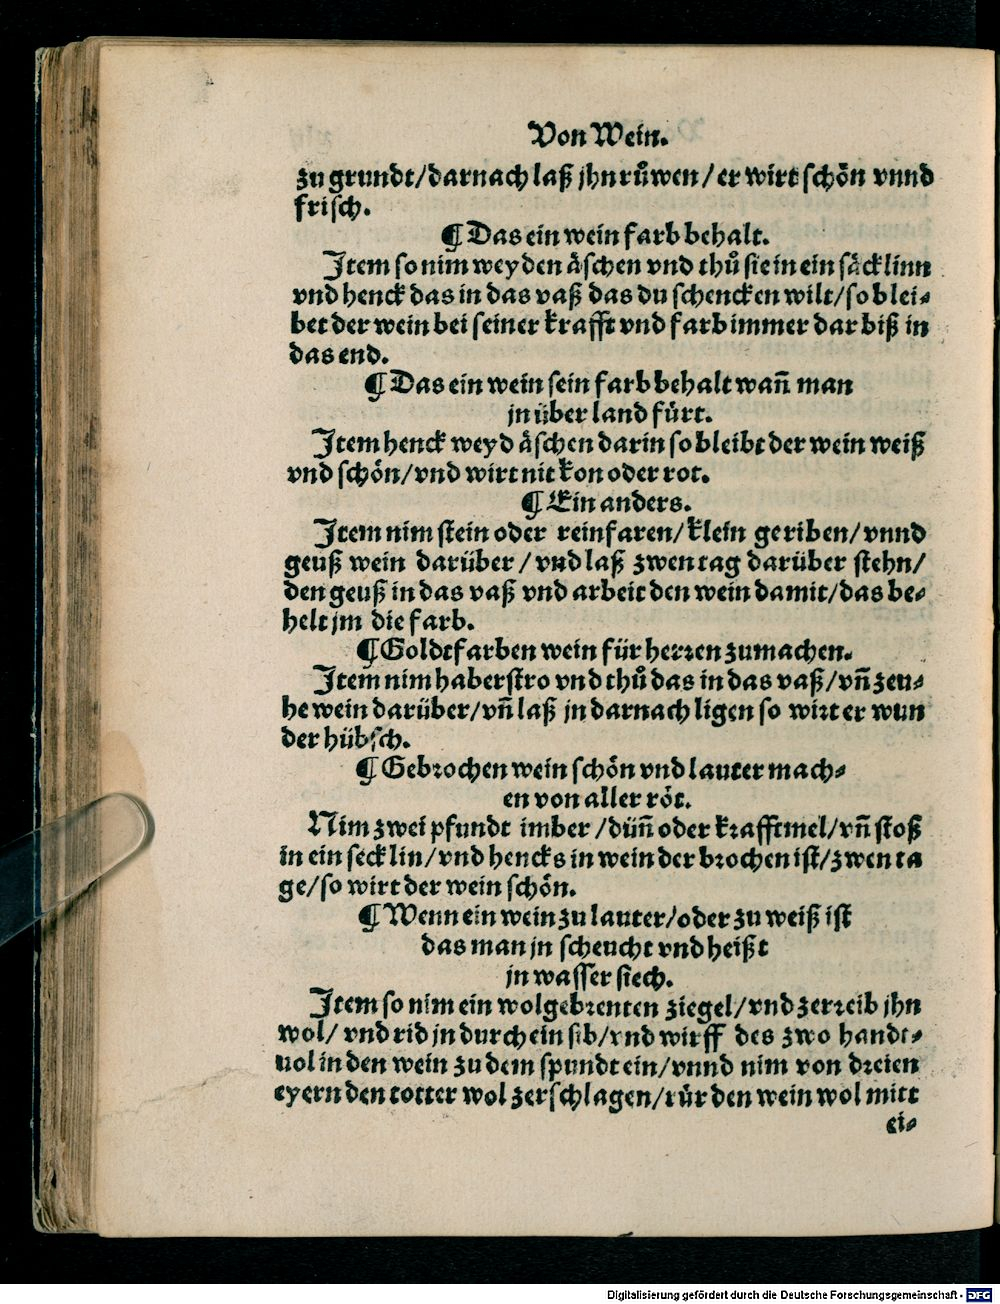 Von Wein.
zu grundt/darnach laß jhn růwen/er wirt schoͤn vnnd
frisch.
¶ Das ein wein farb behalt.
Item so nim weyden aͤschen vnd thů sie in ein saͤcklinn
vnd henck das in das vaß das du schencken wilt/so blei⸗
bet der wein bei seiner krafft vnd farb immer dar biß in
das end.
¶ Das ein wein sein farb behalt wañ man
jn über land fuͤrt.
Item henck weyd aͤschen darin so bleibt der wein weiß
vnd schoͤn/vnd wirt nit kon oder rot.
¶ Ein anders.
Item nim stein oder reinfaren/klein geriben/vnnd
geuß wein darüber/vnd laß zwen tag darüber stehn/
den geuß in das vaß vnd arbeit den wein damit/das be⸗
helt jm die farb.
¶ Goldtfarben wein für herren zumachen.
Item nim haberstro vnd thů das in das vaß/vñ zeu⸗
he wein darüber/vñ laß jn darnach ligen so wirt er wun
der hübsch.
¶ Gebrochen wein schoͤn vnd lauter mach⸗
en von aller roͤt.
Nim zwei pfundt imber/düñ oder krafftmel/vñ stoß
in ein secklin/vnd hencks in wein der brochen ist/zwen ta
ge/so wirt der wein schoͤn.
¶ Wenn ein wein zu lauter/oder zu weiß ist
das man jn scheucht vnd heißt
jn wasser siech.
Item so nim ein wolgebrenten ziegel/vnd zerreib jhn
wol/vnd rid jn durch ein sib/vnd wirff des zwo handt⸗
uol in den wein zu dem spundt ein/vnnd nim von dreien
eyern den totter wol zerschlagen/ruͤr den wein wol mitt
ei⸗
Digitalisierung gefördert durch die Deutsche Forschungsgemeinschaft - DFG